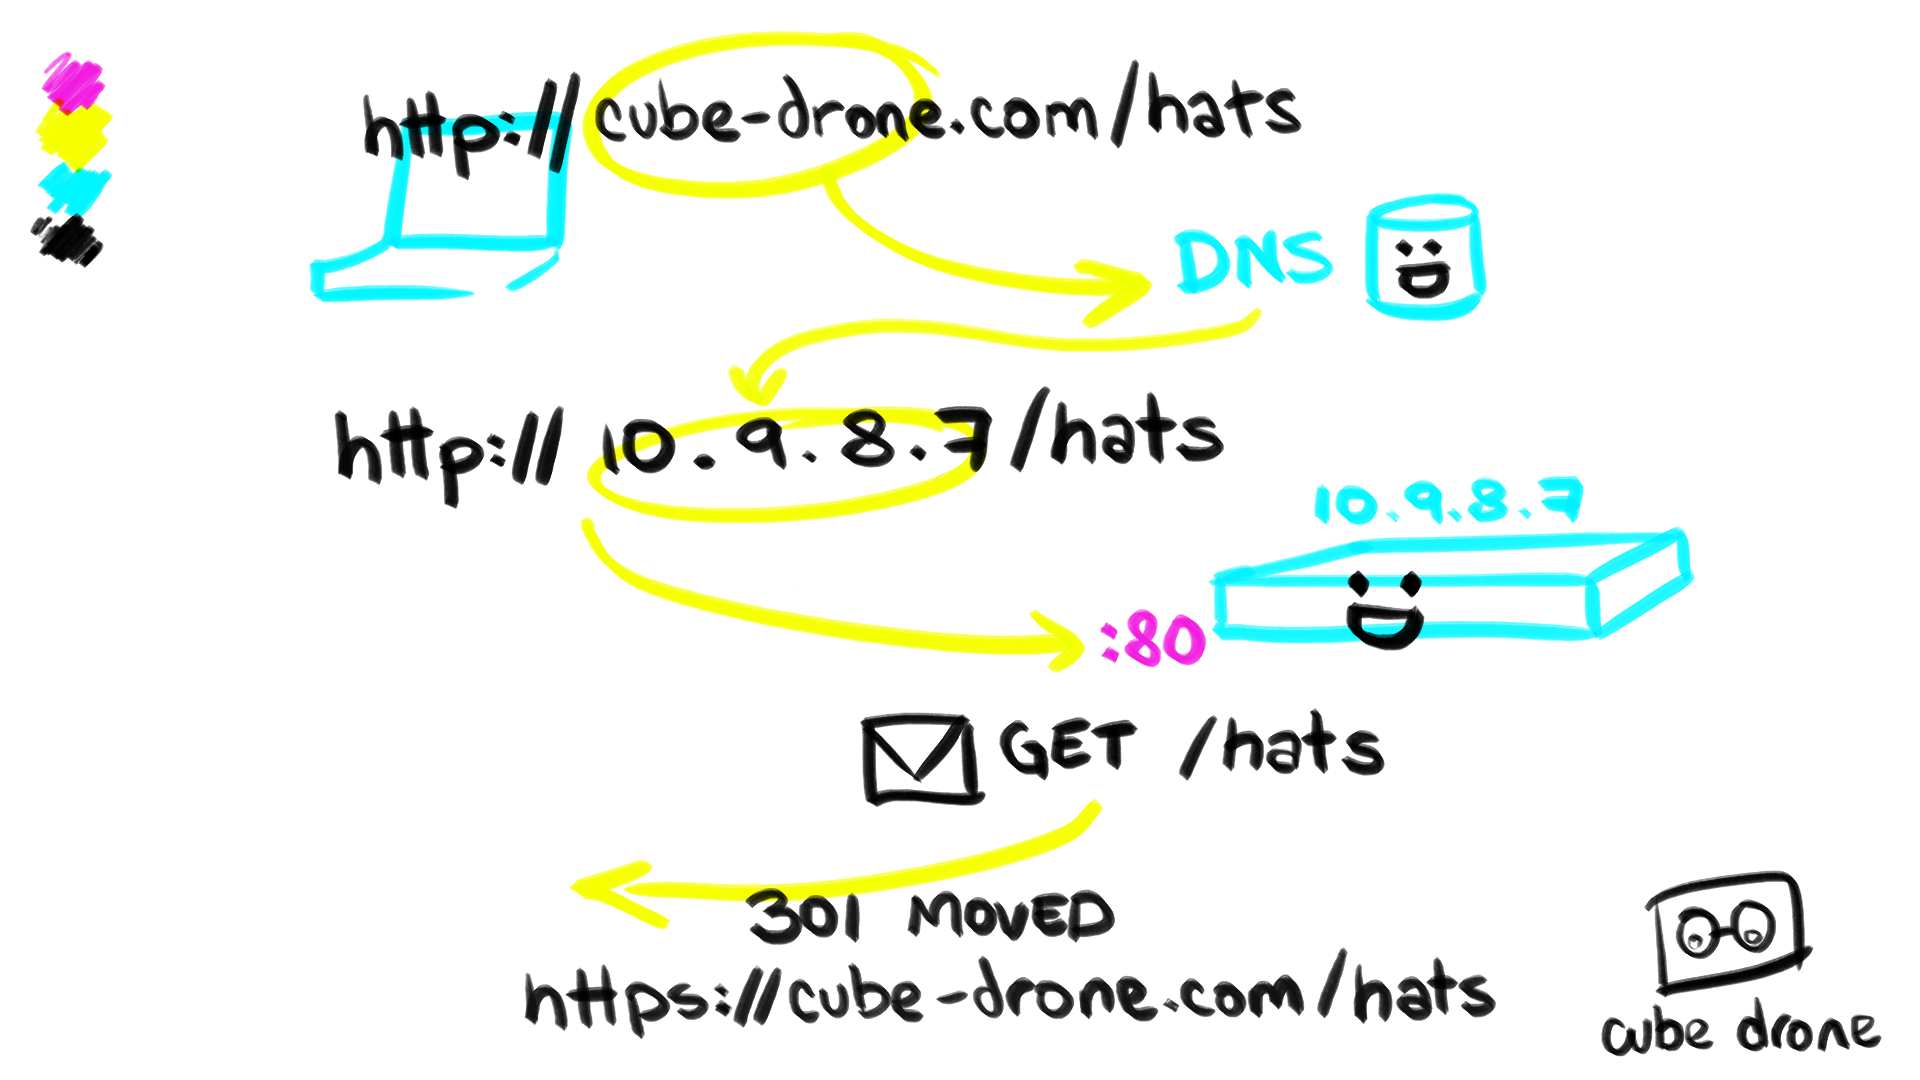 http://cube-drone.com/hats
DNS
http://10.9.8.7/hats
10.9.8.7
:80
GET /hats
301 MOVED
https://cube-drone.com/hats
cube drone